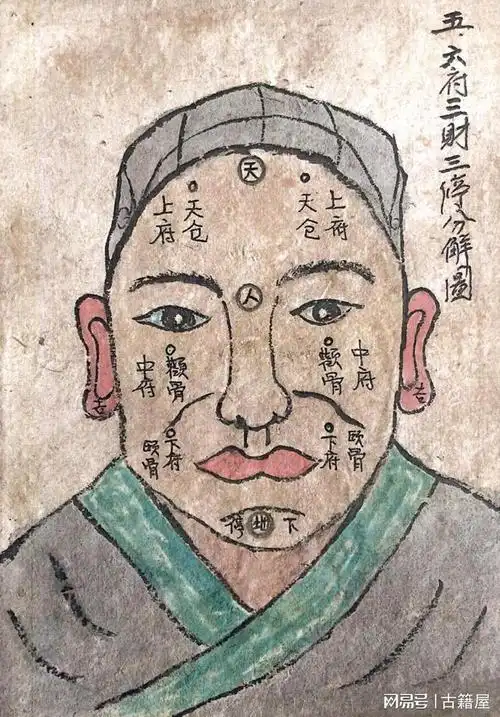 五.六府三財三停分解圖
天
上府
天仓
天仓
上府
人
中府
颧骨
颧骨
中府
颐骨
下府
下府
颐骨
吉
吉
停地下
网易号 | 古籍屋